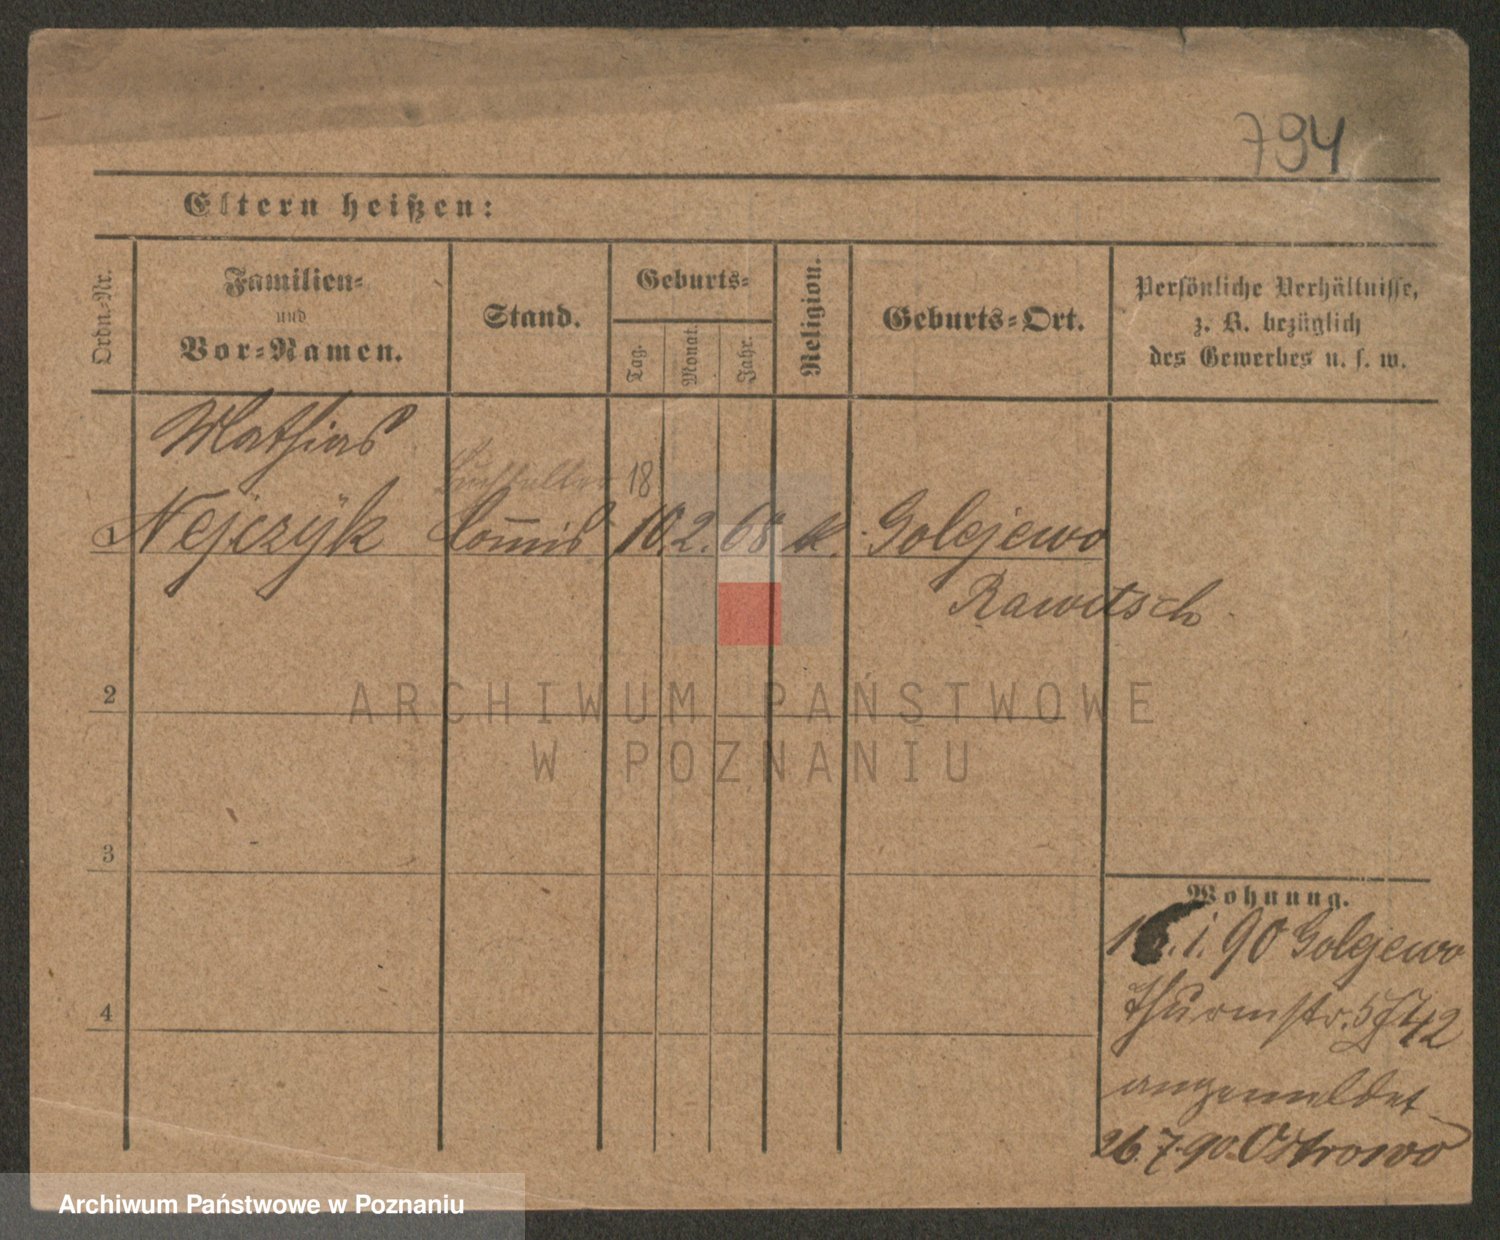 794
Eltern heißen:
Ordn.-Nr.
Familien-
und
Vor-Namen.
Stand.
Geburts-
Tag.
Monat.
Jahr.
Religion.
Geburts-Ort.
Persönliche Verhältnisse,
z. B. bezüglich
des Gewerbes u. s. w.
Mathias
18
Nejczyk Commis 10. 2. 68 k. Golejewo
Rawitsch
2
3
4
Wohnung.
1. 90 Golejewo
Thurmstr.
angemeldet
26.7.90. Ostrowo
ARCHIWUM PAŃSTWOWE
W POZNANIU
Archiwum Państwowe w Poznaniu